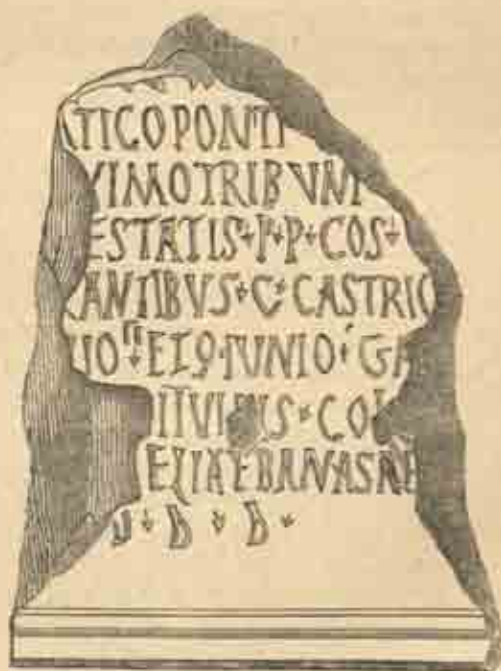 TICOPONTI
XIMOTRIBVNI
ESTATIS·P·P·COS·
ANTIBVS·C·CASTRIC
IO·ET Q·IVNIO·GA
IIVIRIS·COL
ELIAE·BANASAE
D·D·D·